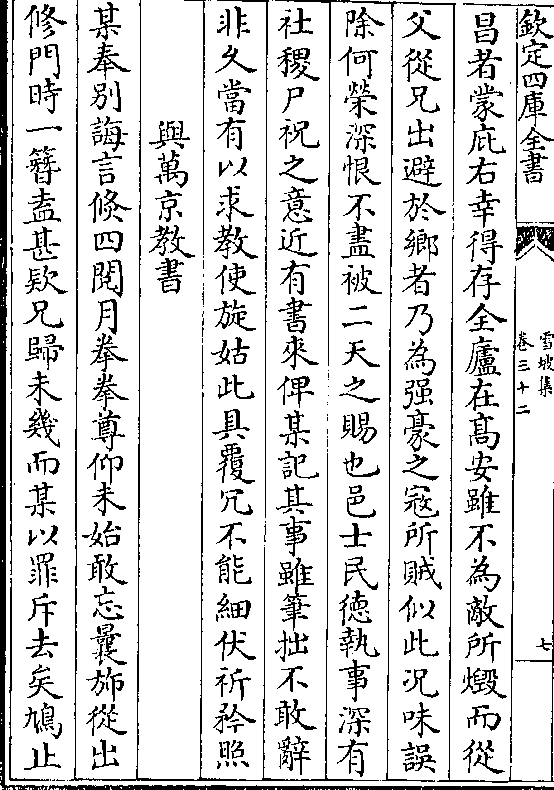 欽定四庫全書
雪坡集
卷三十二
七
昌者蒙庇右幸得存全廬在髙安雖不為敵所燬而從
父從兄出避於鄉者乃為强豪之冦所賊似此况味誤
除何榮深恨不盡被二天之賜也邑士民徳執事深有
社稷尸祝之意近有書來俾某記其事雖筆拙不敢辭
非乆當有以求教使旋姑此具覆冗不能細伏祈矜照
與萬京教書
某奉别誨言倐四閲月拳拳尊仰未始敢忘曩斾從出
修門時一簪盍甚欵兄歸未幾而某以罪斥去矣鳩止